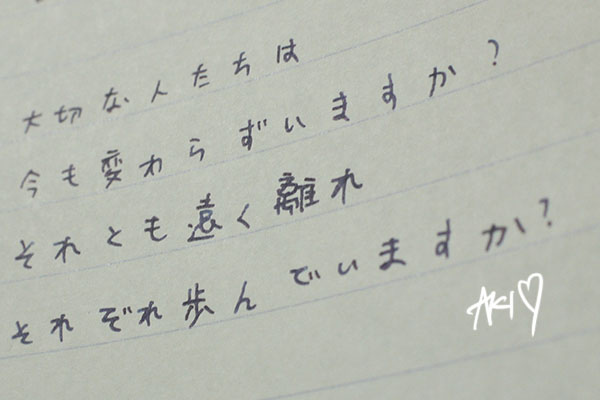 大切な人たちは
今も変わらずいますか?
それとも遠く離れ
それぞれ歩んでいますか?
AKI♡